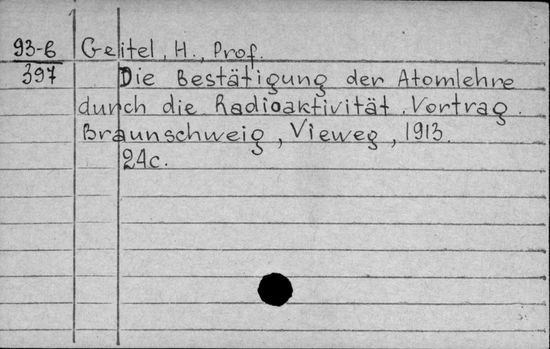 93-6 Geitel, H., Prof.
397 Die Bestätigung der Atomlehre
durch die Radioaktivität. Vortrag.
Braunschweig, Vieweg, 1913.
24c.